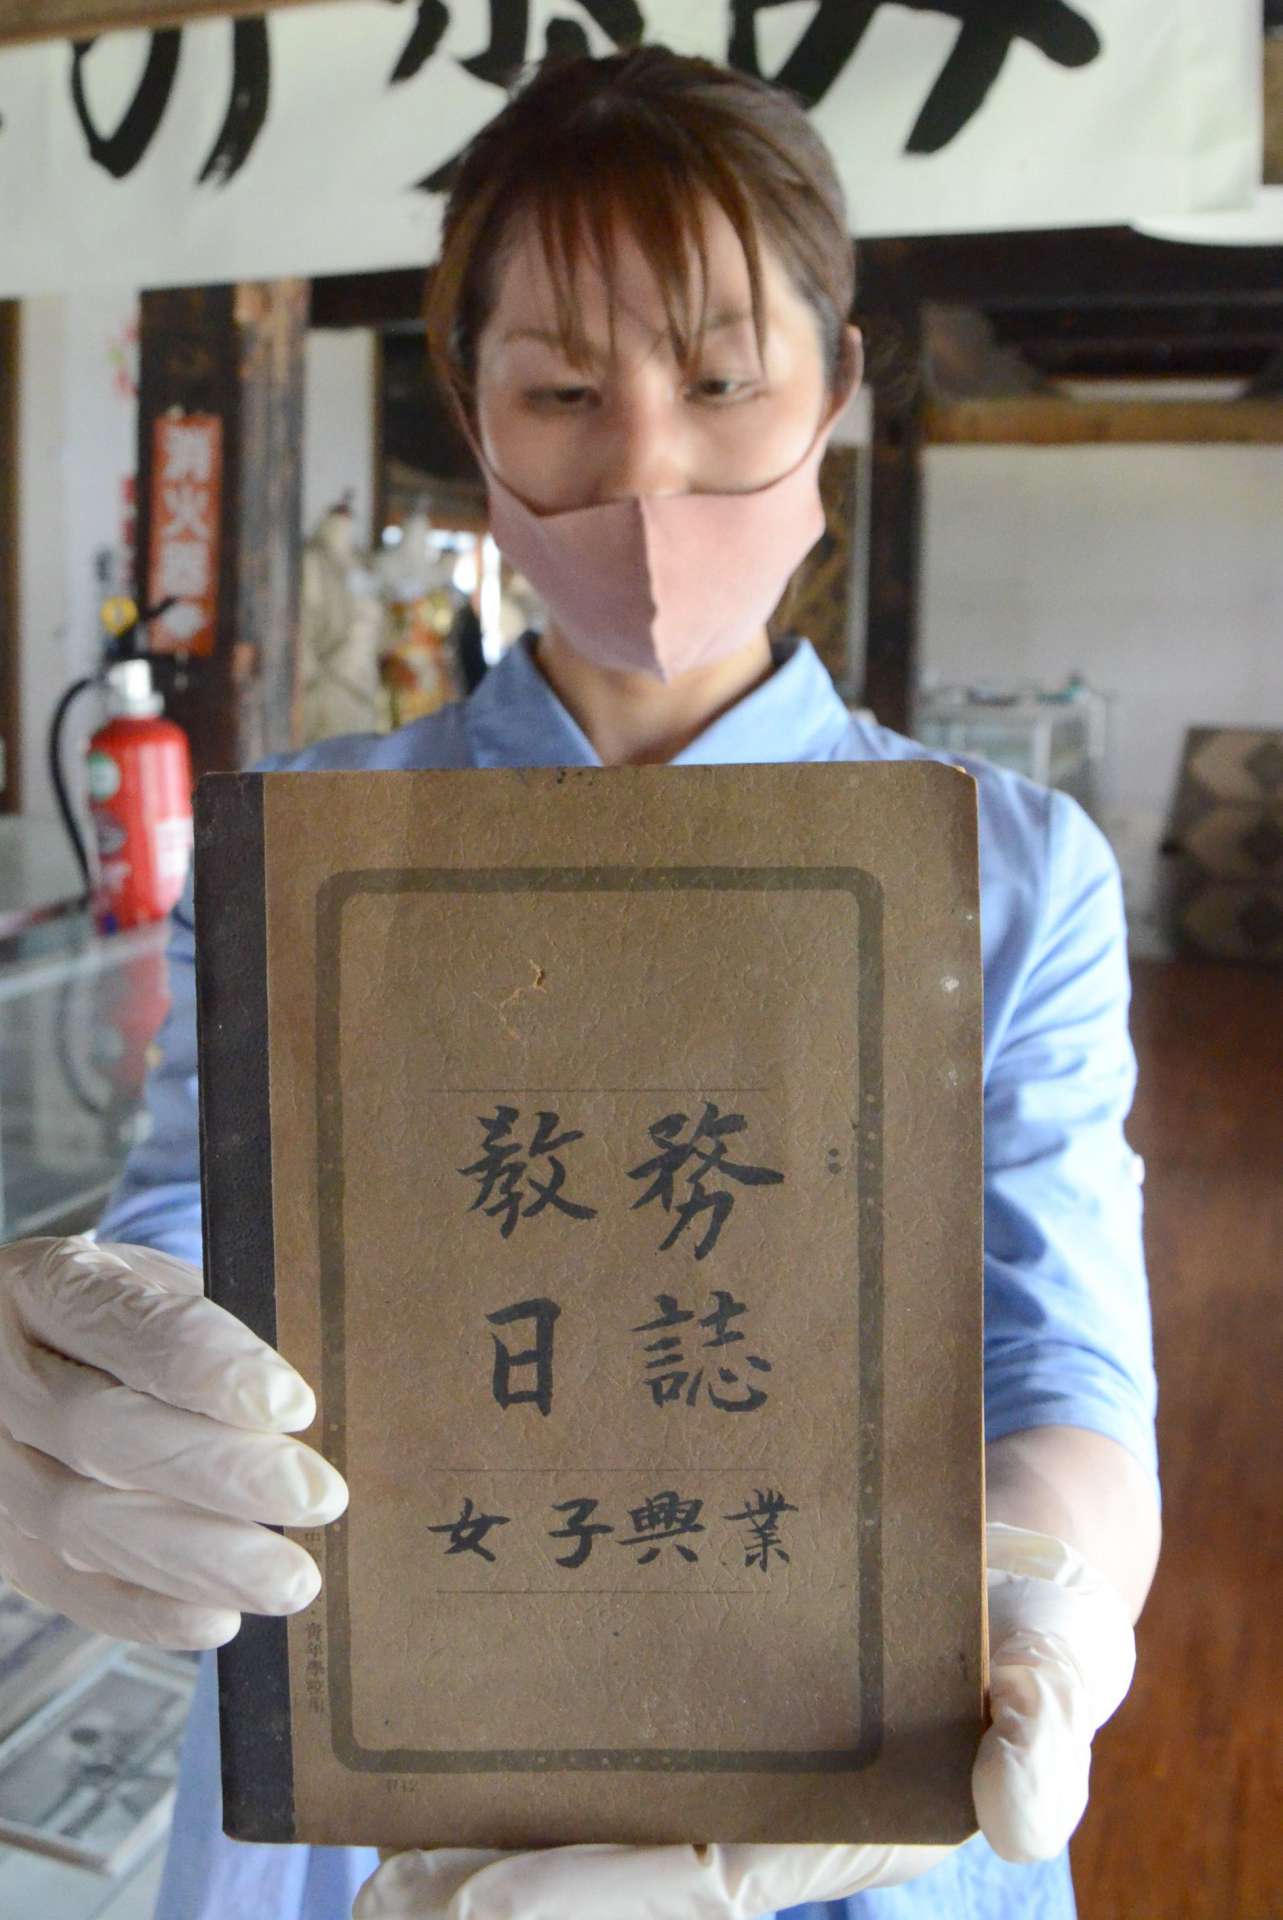 の歩み
消火器
教務
日誌
女子興業
青年學校用